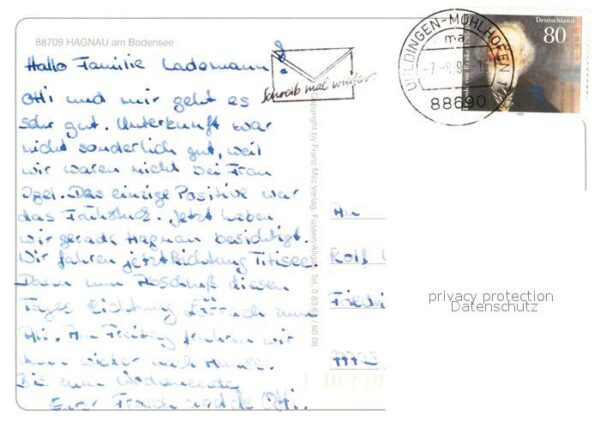 88709 HAGNAU am Bodensee
Hallo Familie Ladermann!
Otti und mir geht es
sehr gut. Unterkunft war
nicht sonderlich gut, weil
wir waren nicht bei Frau
Igel. Das einzige Positive war
das Frühstück. Jetzt haben
wir gerade Hagnau besichtigt.
Wir fahren jetzt Richtung Titisee.
Dann zum Abschluß diesen
Tages Richtung Lörrach zum
Am Freitag fahren wir
dann wieder nach
Bis zum Wochenende
Eure und de Otti.
Schreib mal wieder
UHLDINGEN-MÜHLHOFEN
ma
88690
Deutschland
80
Copyright by Franz Milz Verlag, Füssen/Allgäu Tel. 0 83 62 / 60 08
An
Rolf
Friedri
privacy protection
Datenschutz